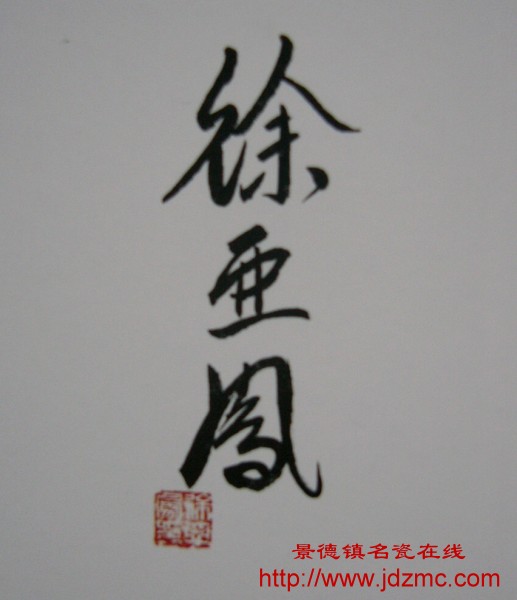 徐亞鳳
景德镇名瓷在线
http://www.jdzmc.com